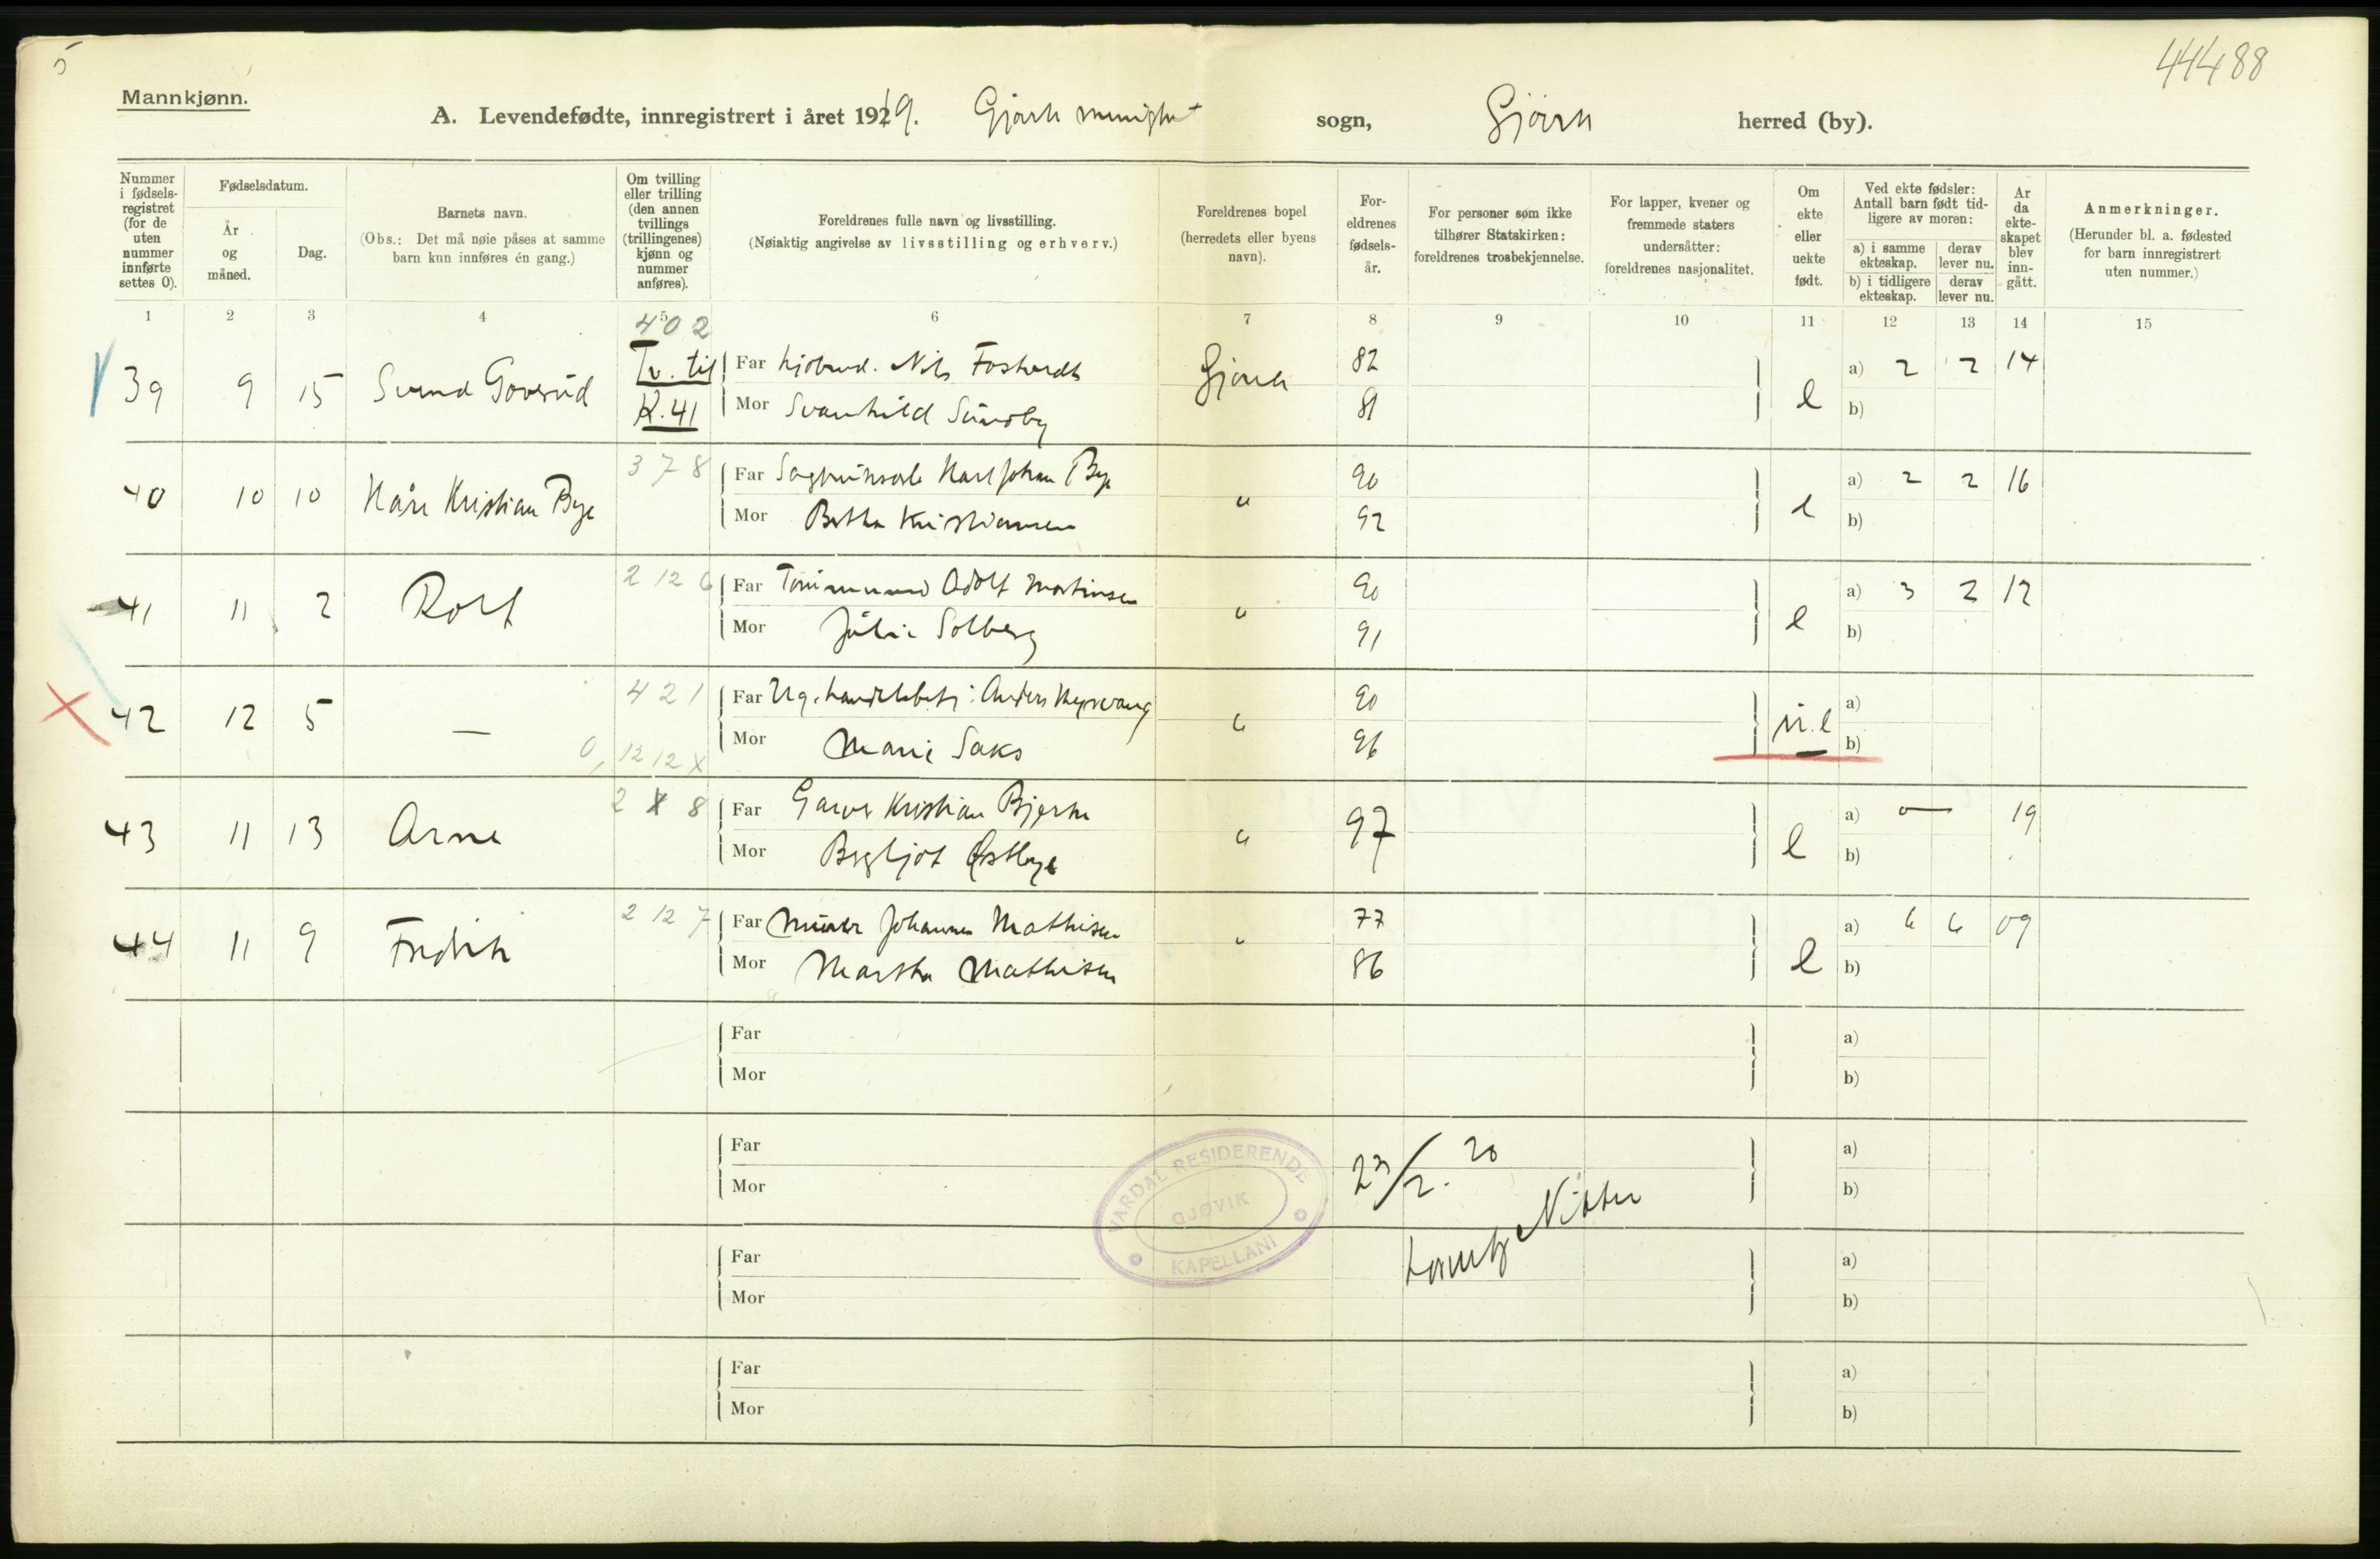 5
44488
Mannkjønn.
A. Levendefødte, innregistrert i året 1919. Gjøvik menighet sogn, Gjøvik herred (by).
Nummer i fødsels-registret (for de uten nummer innførte settes 0).
Fødselsdatum.
År og måned.
Dag.
Barnets navn.
(Obs.: Det må nøie påses at samme barn kun innføres én gang.)
Om tvilling eller trilling (den annen tvillings (trillingenes) kjønn og nummer anføres).
Foreldrenes fulle navn og livsstilling.
(Nøiaktig angivelse av livsstilling og erhverv.)
Foreldrenes bopel (herredets eller byens navn).
For-eldrenes fødsels-år.
For personer som ikke tilhører Statskirken: foreldrenes trosbekjennelse.
For lapper, kvener og fremmede staters undersåtter: foreldrenes nasjonalitet.
Om ekte eller uekte født.
Ved ekte fødsler: Antall barn født tid-ligere av moren:
a) i samme ekteskap.
derav lever nu.
b) i tidligere ekteskap.
derav lever nu.
Ar da ekte-skapet blev inn-gått.
Anmerkninger.
(Herunder bl. a. fødested for barn innregistrert uten nummer.)
1 2 3 4 5 6 7 8 9 10 11 12 13 14 15
402
39 9 15 Svend Tv. til Far Nils Gjøvik 82 e a) 2 2 14
K. 41 Mor Svanhild Sundby 81 b)
378
40 10 10 Kåre Kristian Bye Far Karl Johan Bye " 90 e a) 2 2 16
Mor Kristiansen 92 b)
2 12 6
41 11 2 Rolf Far Adolf Martinsen " 90 e a) 3 2 12
Mor Julie Solberg 91 b)
421
42 12 5 — Far Anders " 90 u.e a)
0, 12 12 X Mor Marie Saks 96 b)
2 X 8
43 11 13 Arne Far Garver Kristian Bjerke " 97 e a) 0 — 19
Mor Bergljot Østbye b)
2 12 7
44 11 9 Fredrik Far Murer Johannes Mathisen " 77 e a) 6 6 09
Mor Martha Mathisen 86 b)
Far a)
Mor b)
Far a)
Mor b)
Far a)
Mor b)
Far a)
Mor b)
VARDAL RESIDERENDE KAPELLANI
GJØVIK
23/2. 20